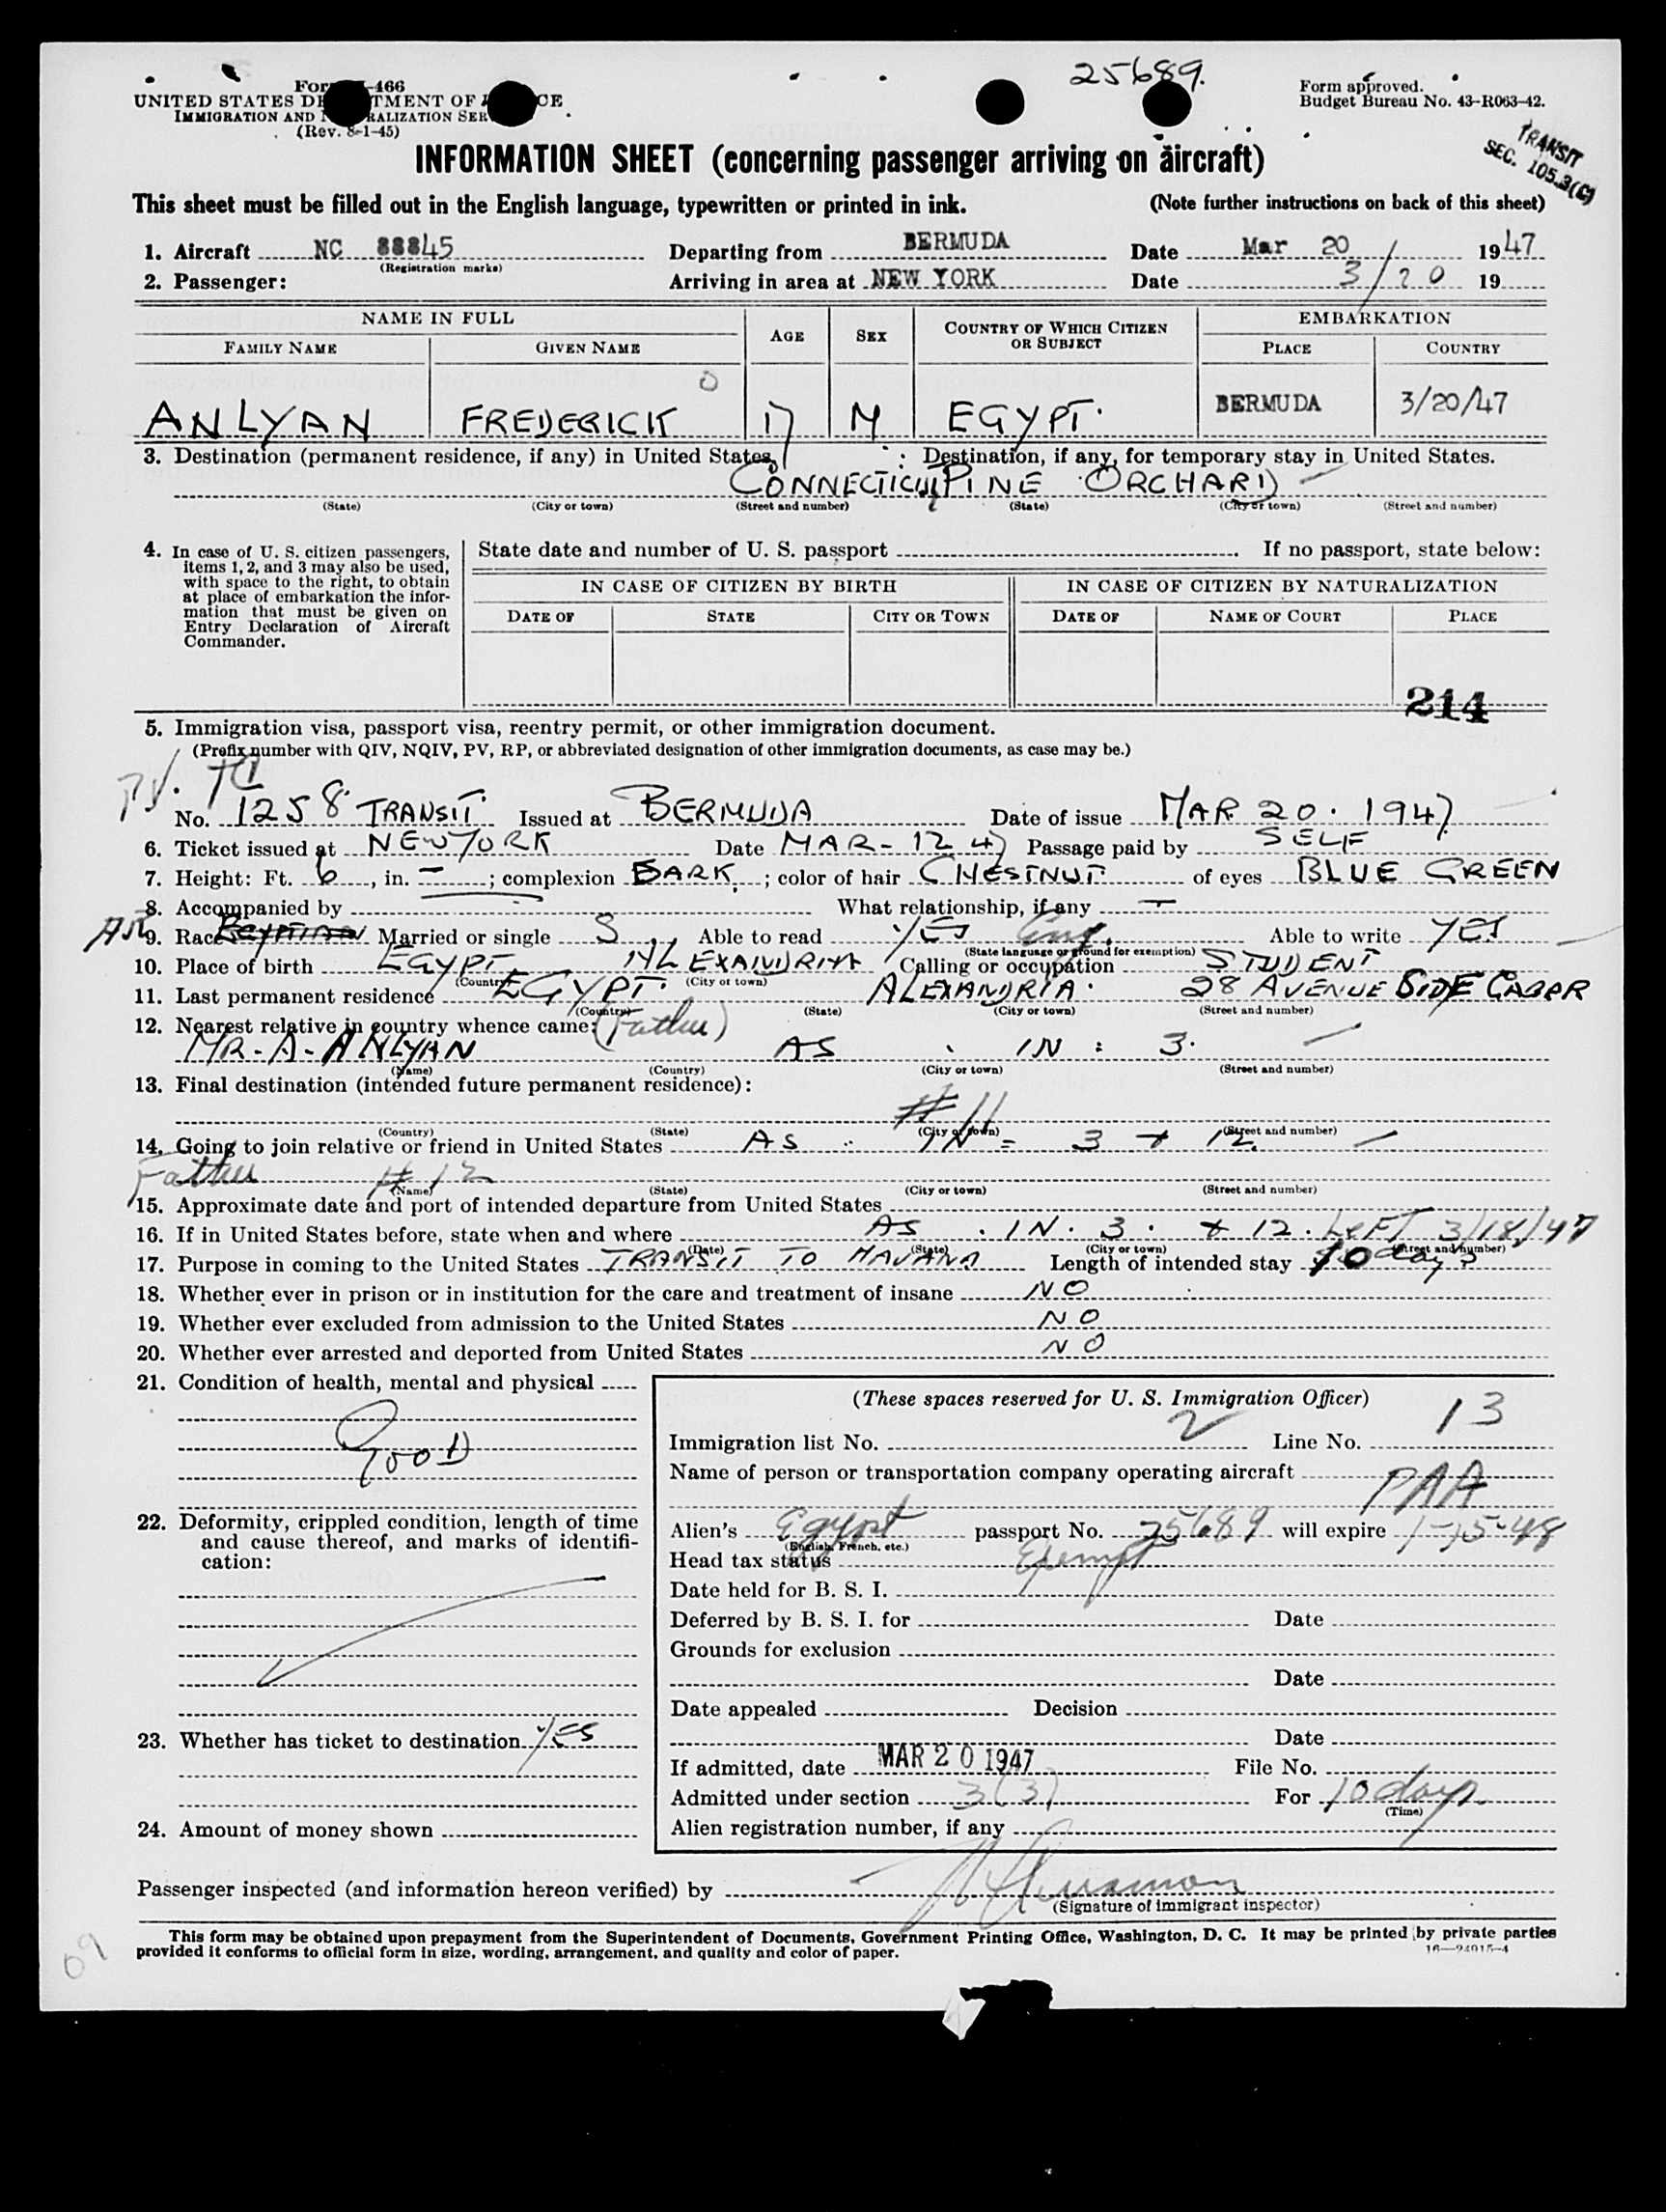 25689.
Form approved.
Budget Bureau No. 43-R063-42.
-466
UNITED STATES
IMMIGRATION AND
(Rev. 8-1-45)
TRANSIT
SEC. 105.3(C)
INFORMATION SHEET (concerning passenger arriving on aircraft)
This sheet must be filled out in the English language, typewritten or printed in ink. (Note further instructions on back of this sheet)
1. Aircraft NC 88845 Departing from BERMUDA Date Mar 20 1947
(Registration marks)
2. Passenger: Arriving in area at NEW YORK Date 3/20 19
NAME IN FULL AGE SEX COUNTRY OF WHICH CITIZEN OR SUBJECT EMBARKATION
FAMILY NAME GIVEN NAME PLACE COUNTRY
ANLYAN FREDERICK 17 M EGYPT. BERMUDA 3/20/47
3. Destination (permanent residence, if any) in United States. : Destination, if any, for temporary stay in United States.
CONNECTICUT PINE ORCHARD
(State) (City or town) (Street and number) (State) (City or town) (Street and number)
4. In case of U. S. citizen passengers, items 1, 2, and 3 may also be used, with space to the right, to obtain at place of embarkation the information that must be given on Entry Declaration of Aircraft Commander.
State date and number of U. S. passport . If no passport, state below:
IN CASE OF CITIZEN BY BIRTH IN CASE OF CITIZEN BY NATURALIZATION
DATE OF STATE CITY OR TOWN DATE OF NAME OF COURT PLACE
214
5. Immigration visa, passport visa, reentry permit, or other immigration document.
(Prefix number with QIV, NQIV, PV, RP, or abbreviated designation of other immigration documents, as case may be.)
PV.
No. 1258 TRANSIT Issued at BERMUDA Date of issue MAR 20. 1947
6. Ticket issued at NEW YORK Date MAR-12 47 Passage paid by SELF
7. Height: Ft. 6, in. -; complexion DARK; color of hair CHESTNUT of eyes BLUE GREEN
8. Accompanied by What relationship, if any -
9. Race Married or single S Able to read YES Eng. Able to write YES
(State language or ground for exemption)
10. Place of birth EGYPT ALEXANDRIA Calling or occupation STUDENT
(Country) (City or town)
11. Last permanent residence EGYPT. ALEXANDRIA. 28 AVENUE SIDE GABER
(Country) (State) (City or town) (Street and number)
12. Nearest relative in country whence came: (Father)
MR-A-ANLYAN AS IN : 3.
(Name) (Country) (City or town) (Street and number)
13. Final destination (intended future permanent residence):
# 11
(Country) (State) (City or town) (Street and number)
14. Going to join relative or friend in United States AS : IN = 3 + 12
Father # 12
(Name) (State) (City or town) (Street and number)
15. Approximate date and port of intended departure from United States
16. If in United States before, state when and where AS . IN. 3. + 12. LEFT 3/18/47
(Date) (State) (City or town) (Street and number)
17. Purpose in coming to the United States TRANSIT TO HAVANA Length of intended stay 10 days
18. Whether ever in prison or in institution for the care and treatment of insane NO
19. Whether ever excluded from admission to the United States NO
20. Whether ever arrested and deported from United States NO
21. Condition of health, mental and physical
GOOD
22. Deformity, crippled condition, length of time and cause thereof, and marks of identification:
23. Whether has ticket to destination YES
24. Amount of money shown
(These spaces reserved for U. S. Immigration Officer)
Immigration list No. 2 Line No. 13
Name of person or transportation company operating aircraft
PAA
Alien's Egypt passport No. 25689 will expire 1-15-48
(English, French, etc.)
Head tax status Exempt
Date held for B. S. I.
Deferred by B. S. I. for Date
Grounds for exclusion
Date
Date appealed Decision
Date
If admitted, date MAR 20 1947 File No.
Admitted under section 3(3) For 10 days
(Time)
Alien registration number, if any
Passenger inspected (and information hereon verified) by
(Signature of immigrant inspector)
This form may be obtained upon prepayment from the Superintendent of Documents, Government Printing Office, Washington, D. C. It may be printed by private parties
provided it conforms to official form in size, wording, arrangement, and quality and color of paper.
16—24915-4